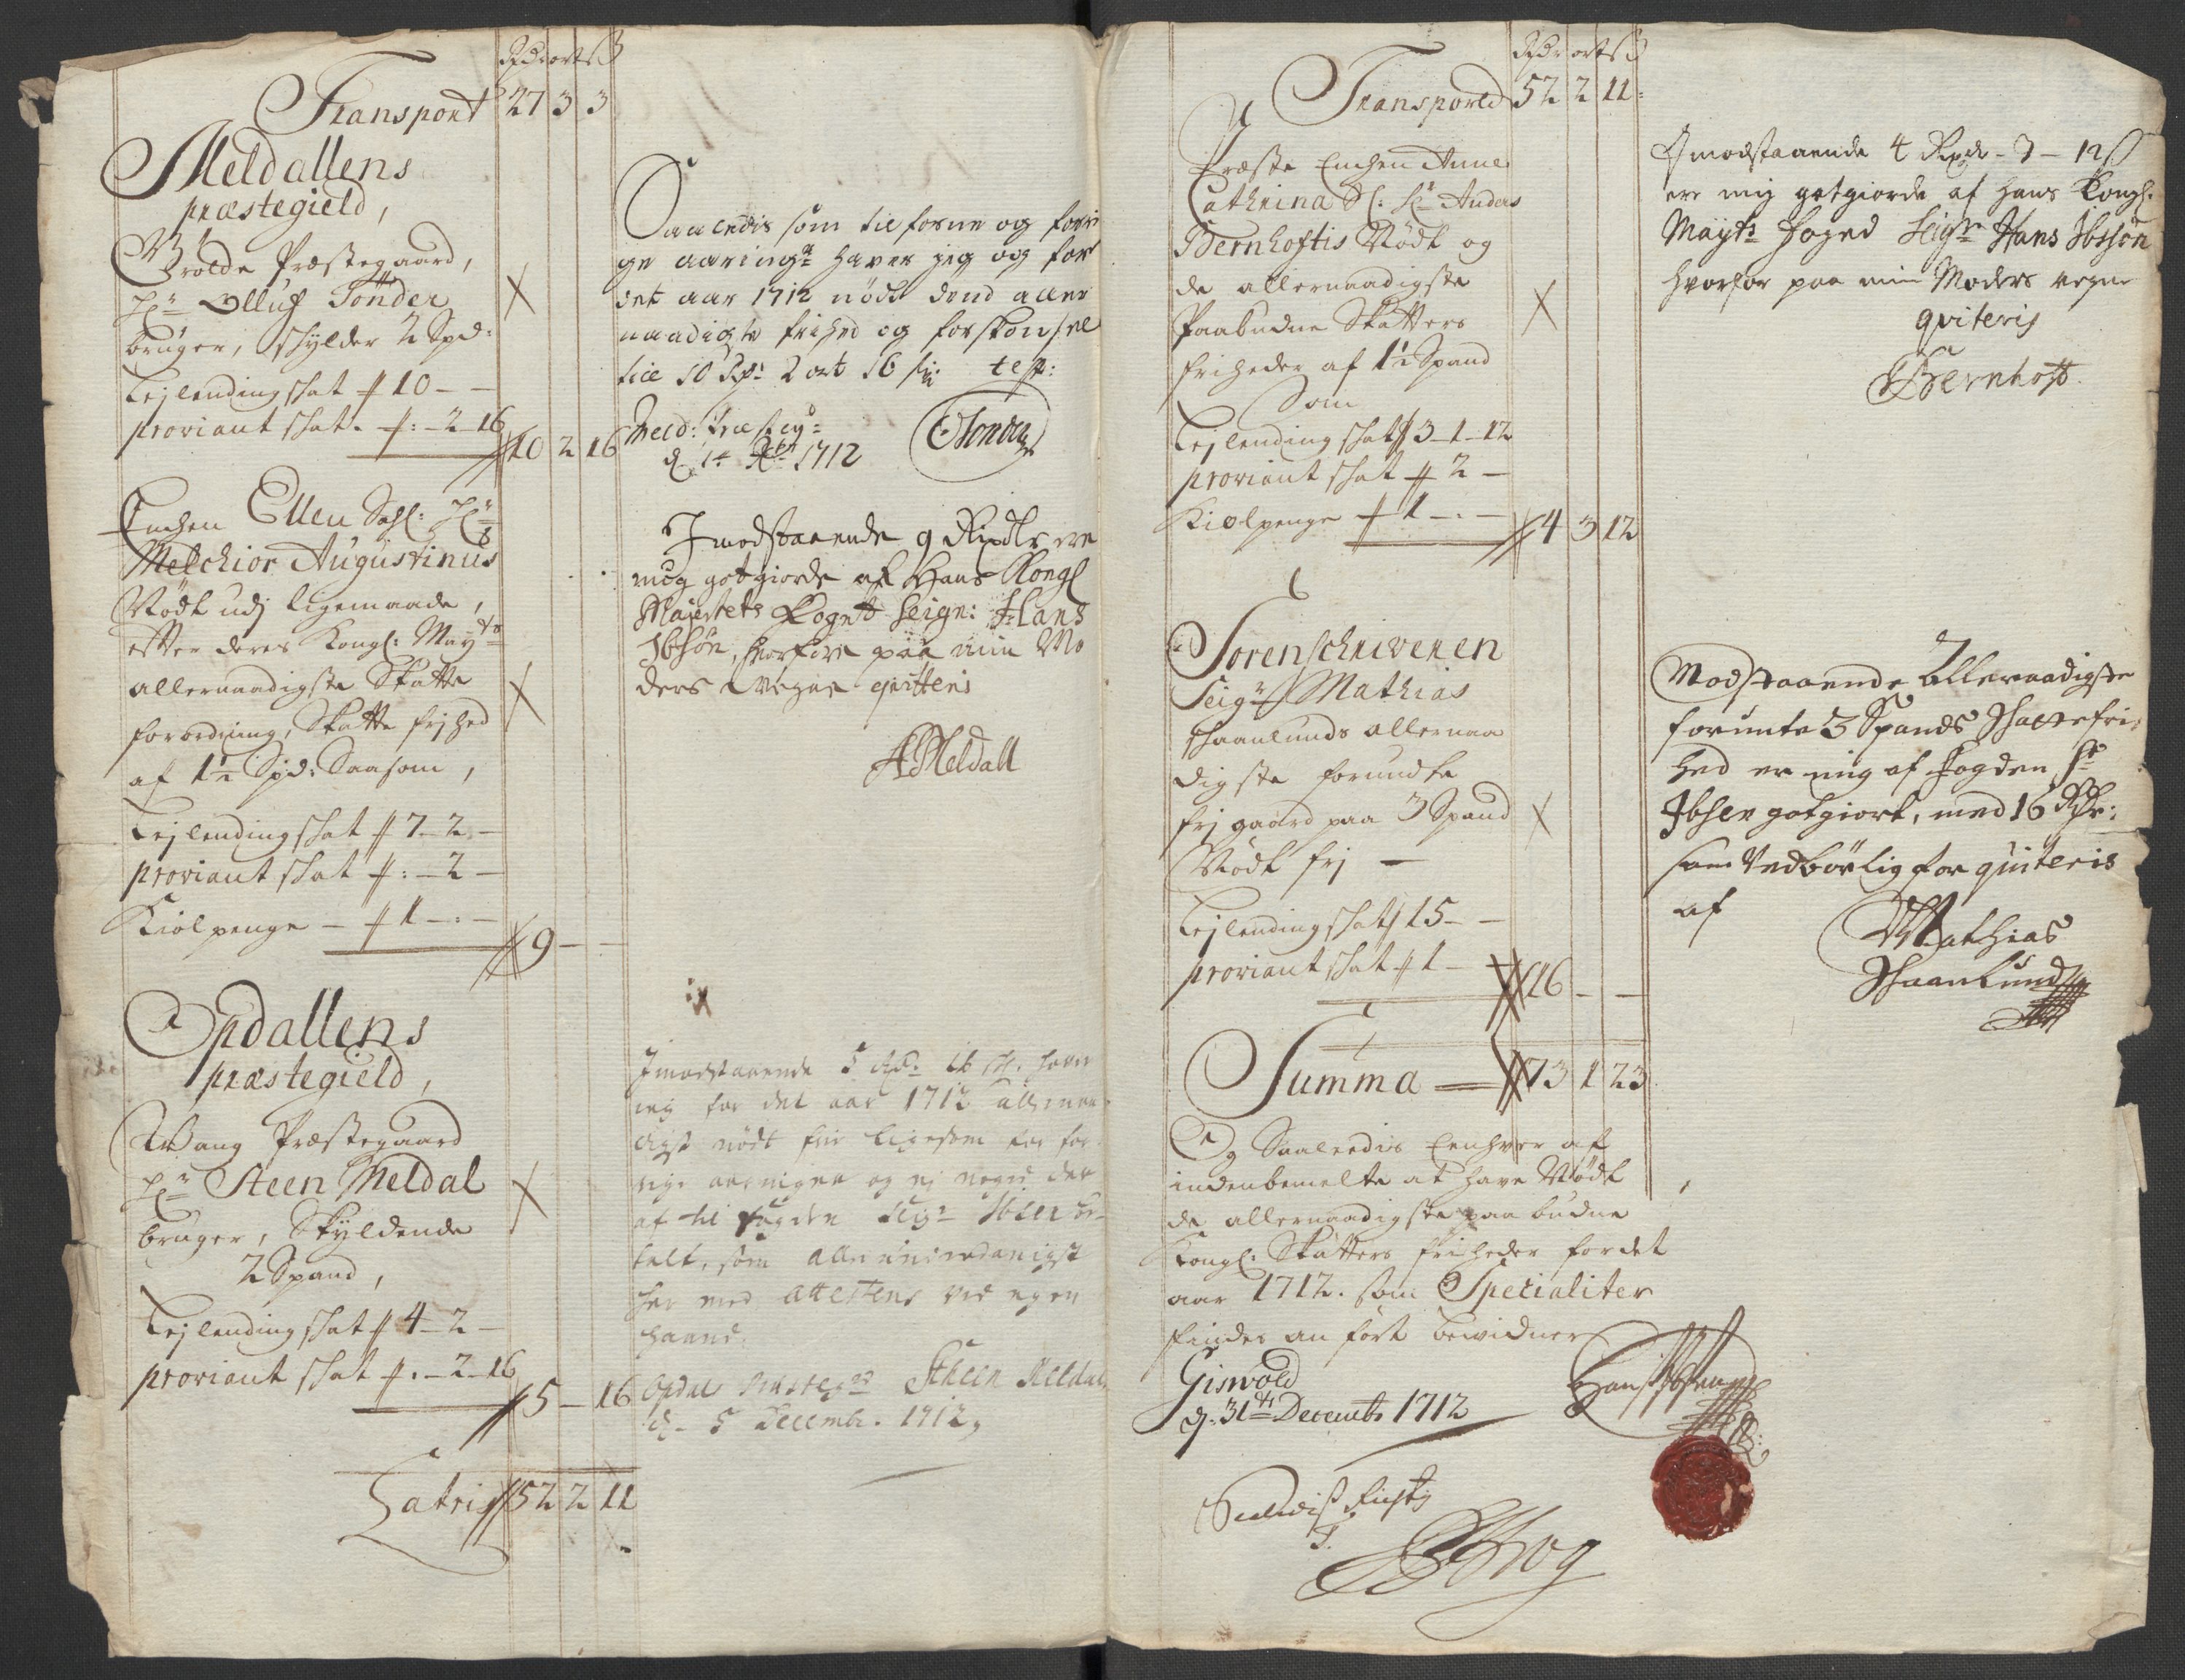 Rdr ort ß
Transport 27 3 3
Meldallens
præstegield,
Grolde Præstegaard,
Hr Olluf Tønder
bruger, schylder 2 Spd:
Lejlending schat # 10 – –
proviant schat. #: – 2 – 16
10 2 16
Enchen Ellen Sahl: Hr
Melchior Augustinus
Nødt udj ligemaade,
effter deres Kongl: Mayts
allernaadigste Skatte
forordning, Skatte frjhed
af 1½ Spd: Saasom,
Lejlending schat # 7 – 2 –
proviant schat #: – 2 –
Kiølpenge – # 1 – : –
9 – –
Opdallens
præstegield,
Wang Præstegaard
Hr Steen Meldal
bruger, Skyldende
2 Spand,
Lejlending schat # 4 – 2 –
proviant schat #: – 2 – 16
5 – 16
Latris 52 2 11
Saaledis som tilforne og forri
ge aaringer haver jeg og for
det aar 1712 nødt dend aller
naadigste frihed og forskonsel
till 10 Rdr 2 ort 16 test:
Meld: Præstegd
d 1712 OTønder
Imodstaaende 9 Rixdlr ere
mig gotgiorde af Hans Kongl
Majestets Fogett Seign: Hans
Ibsøn, hvorfore paa min Mo
ders Wegne qvitteris
AMeldall
Imodstaaende 5 Rd: 16 ß. haver
jeg for det aar 1712 allernaa
digst nødt frie ligesom for for
rige aaringer og ej noged der
af til fogden Seigr Ibsen be
talt, som allerunderdanigst
her med attesteris ved egen
haand.
Opdal Præstegrd Steen Meldal
d. 5 Decembr. 1712,
Rdr ort ß
Transporld 52 2 11
Præste Enchen Anne
Cathrina Sl: Hr Anders
Bernhoftis Nødt og
de allernaadigste
Paabudne Skatters
friheder af 1½ Spand
Som
Lejlending schat # 3 – 1 – 12
proviant schat # 2 –
Kiolpenge # 1 – . –
4 3 12
Sorenschriveren
Seigr Mathias
Schaanlunds allernaa
digste forundte
frj gaard paa 3 Spand
Nødt frj –
Lejlending schat # 15 – –
proviant schat # 1 – –
16 – –
Summa 73 1 23
Og Saaledis Eenhver af
indenbemelte at have Nødt
de allernaadigste paa budne
Kongl: Skatters friheder for det
aar 1712. som Specialiter
findes anført bevidner
Giswold
d: 31te Decembr 1712 Hans Ibsen
Imodstaaende 4 Rixdr – 3 – 12 ß
ere mig gotgiorde af Hans Kongl:
Mayts Foged Seigr Hans Ibssøn
hvorfor paa min Moders vegne
qviteris
Bernhoft.
Modstaaende Allernaadigste
forunte 3 Spands Schattefri
hed er mig af Fogden Sr
Ibsen gotgiort, med 16 Rdr:
som Vedbørlig for quiteris
af
Mathias
Schaanlund